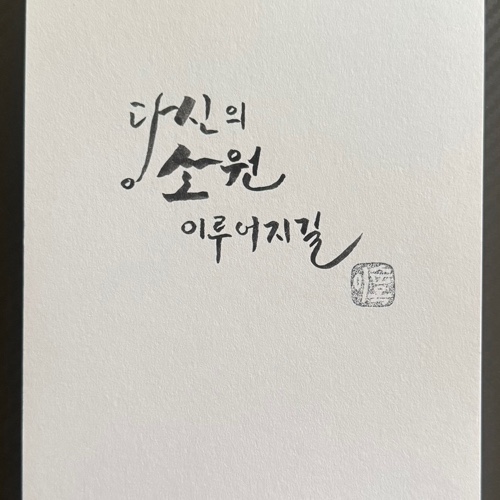 당신의
소원
이루어지길